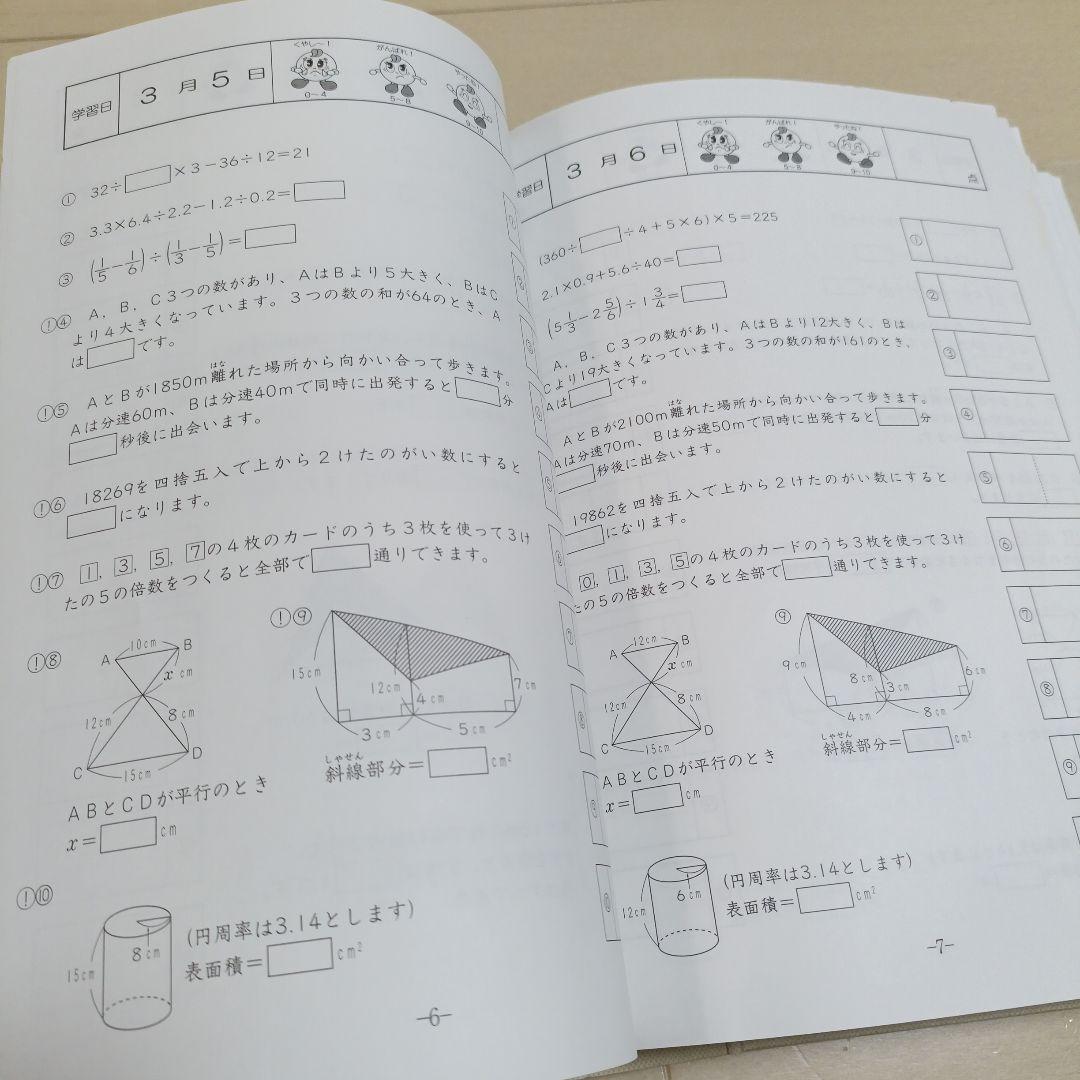 学習日 3月5日
くやし〜! がんばれ! やったね!
0〜4 5〜8 9〜10
① 32÷□×3−36÷12=21
② 3.3×6.4÷2.2−1.2÷0.2=□
③ (1/5−1/6)÷(1/3−1/5)=□
!④ A.B.C3つの数があり、AはBより5大きく、BはC
より4大きくなっています。3つの数の和が64のとき、A
は□です。
!⑤ AとBが1850m離れた場所から向かい合って歩きます。
はな
Aは分速60m、Bは分速40mで同時に出発すると□分
□秒後に出会います。
!⑥ 18269を四捨五入で上から2けたのがい数にすると
□になります。
!⑦ 1, 3, 5, 7の4枚のカードのうち3枚を使って3け
たの5の倍数をつくると全部で□通りできます。
!⑧
10cm
A B
x cm
12cm 8cm
C D
15cm
ABとCDが平行のとき
x=□cm
!⑨
15cm 12cm 4cm 7cm
3cm 5cm
しゃせん
斜線部分=□cm²
!⑩
15cm 8cm
(円周率は3.14とします)
表面積=□cm²
−6−
習日 3月6日
くやし〜! がんばれ! やったね!
0〜4 5〜8 9〜10
点
(360÷□÷4+5×6)×5=225
2.1×0.9+5.6÷40=□
(5 1/3−2 5/6)÷1 3/4=□
A.B.C3つの数があり、AはBより12大きく、Bは
Cより19大きくなっています。3つの数の和が161のとき、
Aは□です。
はな
AとBが2100m離れた場所から向かい合って歩きます。
Aは分速70m、Bは分速50mで同時に出発すると□分
□秒後に出会います。
19862を四捨五入で上から2けたのがい数にすると
□になります。
0, 1, 3, 5の4枚のカードのうち3枚を使って3け
たの5の倍数をつくると全部で□通りできます。
12cm
A B
x cm
12cm 8cm
C D
15cm
ABとCDが平行のとき
x=□cm
⑨
9cm 8cm 3cm 6cm
4cm 8cm
しゃせん
斜線部分=□cm²
12cm 6cm
(円周率は3.14とします)
表面積=□cm²
−7−
①
②
③
④
⑤
⑥
⑦
⑧
⑨